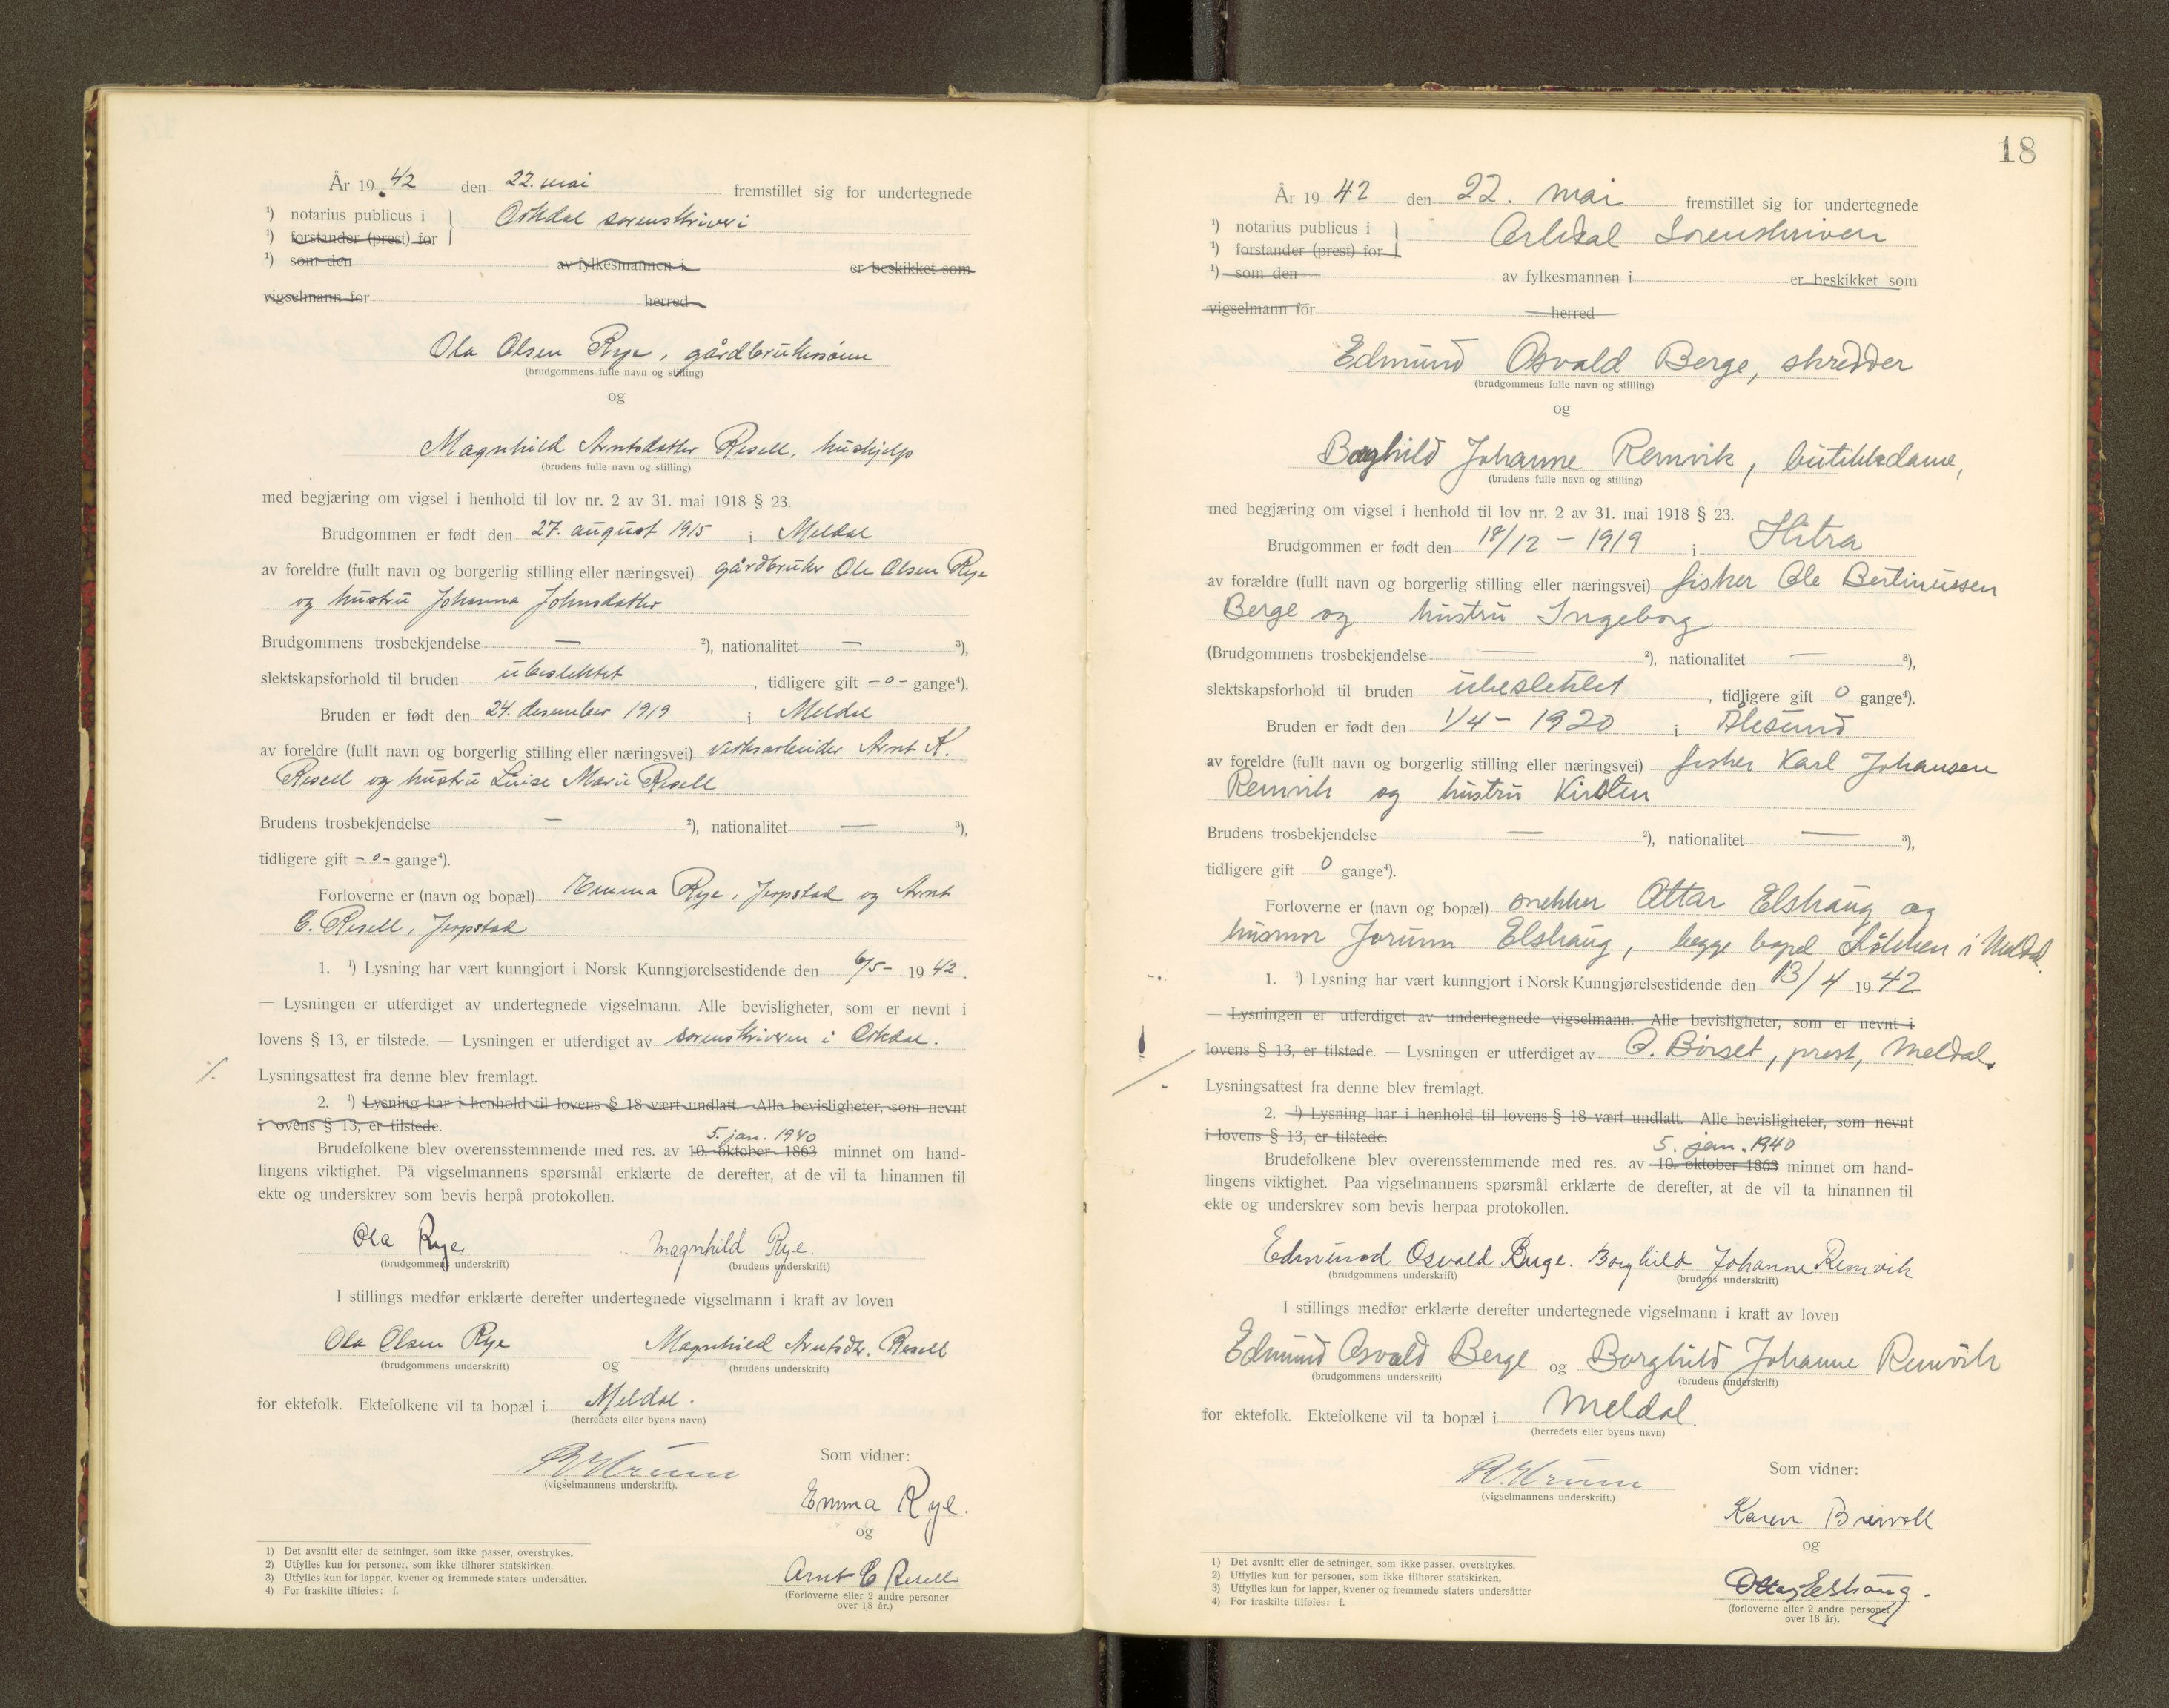 År 19 42 den 22. mai fremstillet sig for undertegnede
¹) notarius publicus i } Orkdal sorenskriveri
¹) forstander (prest) for
¹) som den av fylkesmannen i er beskikket som
vigselmann for herred
Ola Olsen Rye, gårdbrukersønn
(brudgommens fulle navn og stilling)
og
Magnhild Arntsdatter Resell, hushjelp
(brudens fulle navn og stilling)
med begjæring om vigsel i henhold til lov nr. 2 av 31. mai 1918 § 23.
Brudgommen er født den 27. august 1915 i Meldal
av foreldre (fullt navn og borgerlig stilling eller næringsvei) gårdbruker Ole Olsen Rye
og hustru Johanna Johnsdatter
Brudgommens trosbekjendelse — ²), nationalitet — ³),
slektskapsforhold til bruden ubeslektet, tidligere gift -0- gange⁴).
Bruden er født den 24. desember 1919 i Meldal
av foreldre (fullt navn og borgerlig stilling eller næringsvei) verksarbeider Arnt K.
Resell og hustru Luise Marie Resell
Brudens trosbekjendelse — ²), nationalitet — ³),
tidligere gift -0- gange⁴).
Forloverne er (navn og bopæl) Emma Rye, Jerpstad og Arnt
C. Resell, Jerpstad
1. ¹) Lysning har vært kunngjort i Norsk Kunngjørelsestidende den 6/5- 1942.
— Lysningen er utferdiget av undertegnede vigselmann. Alle bevisligheter, som er nevnt i
lovens § 13, er tilstede. — Lysningen er utferdiget av sorenskriveren i Orkdal.
Lysningsattest fra denne blev fremlagt.
2. ¹) Lysning har i henhold til lovens § 18 vært undlatt. Alle bevisligheter, som nevnt
i ovens § 13, er tilstede.
5. jan. 1940
Brudefolkene blev overensstemmende med res. av 10. oktober 1863 minnet om hand-
lingens viktighet. På vigselmannens spørsmål erklærte de derefter, at de vil ta hinannen til
ekte og underskrev som bevis herpå protokollen.
Ola Rye Magnhild Rye.
(brudgommens underskrift) (brudens underskrift)
I stillings medfør erklærte derefter undertegnede vigselmann i kraft av loven
Ola Olsen Rye og Magnhild Arntsdtr. Resell
(brudgommens underskrift) (brudens underskrift)
for ektefolk. Ektefolkene vil ta bopæl i Meldal.
(herredets eller byens navn)
Som vidner:
(vigselmannens underskrift).
Emma Rye.
og
Arnt C Resell
(Forloverne eller 2 andre personer
over 18 år.)
1) Det avsnitt eller de setninger, som ikke passer, overstrykes.
2) Utfylles kun for personer, som ikke tilhører statskirken.
3) Utfylles kun for lapper, kvener og fremmede staters undersåtter.
4) For fraskilte tilføies: f.
18
År 19 42 den 22. mai fremstillet sig for undertegnede
¹) notarius publicus i } Orkdal Sorenskriveri
¹) forstander (prest) for
¹) som den av fylkesmannen i er beskikket som
vigselmann for herred
Edmund Osvald Berge, skredder
(brudgommens fulle navn og stilling)
og
Borghild Johanne Remvik, butikkdame,
(brudens fulle navn og stilling)
med begjæring om vigsel i henhold til lov nr. 2 av 31. mai 1918 § 23.
Brudgommen er født den 18/12 - 1919 i Hitra
av forældre (fullt navn og borgerlig stilling eller næringsvei) fisker Ole Bertinussen
Berge og hustru Ingeborg
(Brudgommens trosbekjendelse — ²), nationalitet — ³),
slektskapsforhold til bruden ubeslektet, tidligere gift 0 gange⁴).
Bruden er født den 1/4 - 1920 i Ålesund
av foreldre (fullt navn og borgerlig stilling eller næringsvei) fisker Karl Johansen
Remvik og hustru Kirsten
Brudens trosbekjendelse — ²), nationalitet — ³),
tidligere gift 0 gange⁴).
Forloverne er (navn og bopæl) snekker Ottar Elshaug og
husmor Jorunn Elshaug, begge bopel Løkken i Meldal.
1. ¹) Lysning har vært kunngjort i Norsk Kunngjørelsestidende den 13/4 1942
— Lysningen er utferdiget av undertegnede vigselmann. Alle bevisligheter, som er nevnt i
lovens § 13, er tilstede. — Lysningen er utferdiget av O. Børset, prest, Meldal.
Lysningsattest fra denne blev fremlagt.
2. ¹) Lysning har i henhold til lovens § 18 vært undlatt. Alle bevisligheter, som nevnt
i lovens § 13, er tilstede.
5. jan. 1940
Brudefolkene blev overensstemmende med res. av 10. oktober 1863 minnet om hand-
lingens viktighet. Paa vigselmannens spørsmål erklærte de derefter, at de vil ta hinannen til
ekte og underskrev som bevis herpaa protokollen.
Edmund Osvald Berge. Borghild Johanne Remvik
(brudgommens underskrift) (brudens underskrift)
I stillings medfør erklærte derefter undertegnede vigselmann i kraft av loven
Edmund Osvald Berge og Borghild Johanne Remvik
(brudgommens underskrift) (brudens underskrift)
for ektefolk. Ektefolkene vil ta bopæl i Meldal.
(herredets eller byens navn)
Som vidner:
(vigselmannens underskrift.)
Karen
og
Ottar Elshaug.
(forloverne eller 2 andre personer
over 18 år).
1) Det avsnitt eller de setninger, som ikke passer, overstrykes.
2) Utfylles kun for personer, som ikke tilhører statskirken.
3) Utfylles kun for lapper, kvener og fremmede staters undersåtter
4) For fraskilte tilføies: f.